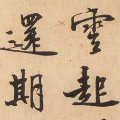 雲起
還期